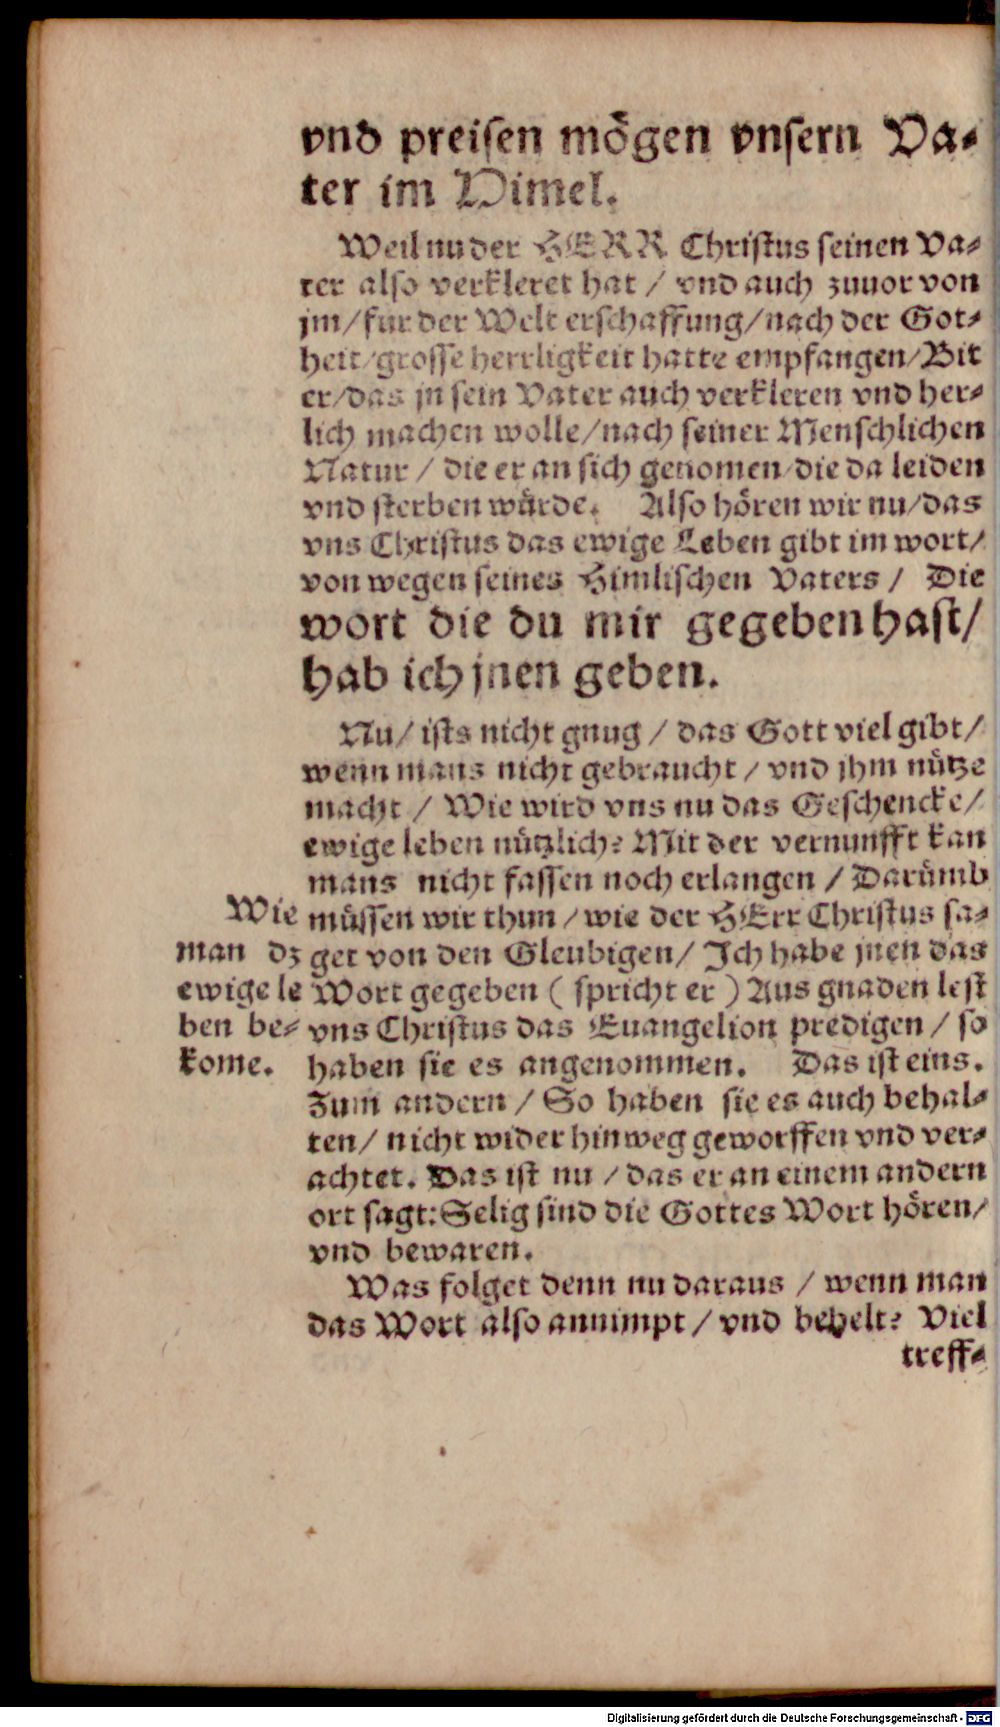 vnd preisen mögen vnsern Va-
ter im Himel.
Weil nu der HERR Christus seinen Va-
ter also verkleret hat / vnd auch zuuor von
jm/ fur der Welt erschaffung/ nach der Got-
heit/ grosse herrligkeit hatte empfangen/ Bit
er/ das jn sein Vater auch verkleren vnd her-
lich machen wolle/ nach seiner Menschlichen
Natur / die er an sich genomen/ die da leiden
vnd sterben würde. Also hören wir nu/ das
vns Christus das ewige Leben gibt im wort/
von wegen seines Himlischen Vaters / Die
wort die du mir gegeben hast/
hab ich jnen geben.
Nu/ ists nicht gnug / das Gott viel gibt/
wenn mans nicht gebraucht / vnd jhm nütze
macht / Wie wird vns nu das Geschencke/
ewige leben nützlich? Mit der vernunfft kan
mans nicht fassen noch erlangen / Darümb
müssen wir thun / wie der HErr Christus sa-
get von den Gleubigen/ Ich habe jnen das
Wort gegeben ( spricht er ) Aus gnaden lest
vns Christus das Euangelion predigen / so
haben sie es angenommen. Das ist eins.
Zum andern / So haben sie es auch behal-
ten/ nicht wider hinweg geworffen vnd ver-
achtet. Das ist nu / das er an einem andern
ort sagt: Selig sind die Gottes Wort hören/
vnd bewaren.
Was folget denn nu daraus / wenn man
das Wort also annimpt / vnd behelt? Viel
treff-
Wie
man dz
ewige le
ben be-
kome.
Digitalisierung gefördert durch die Deutsche Forschungsgemeinschaft - DFG